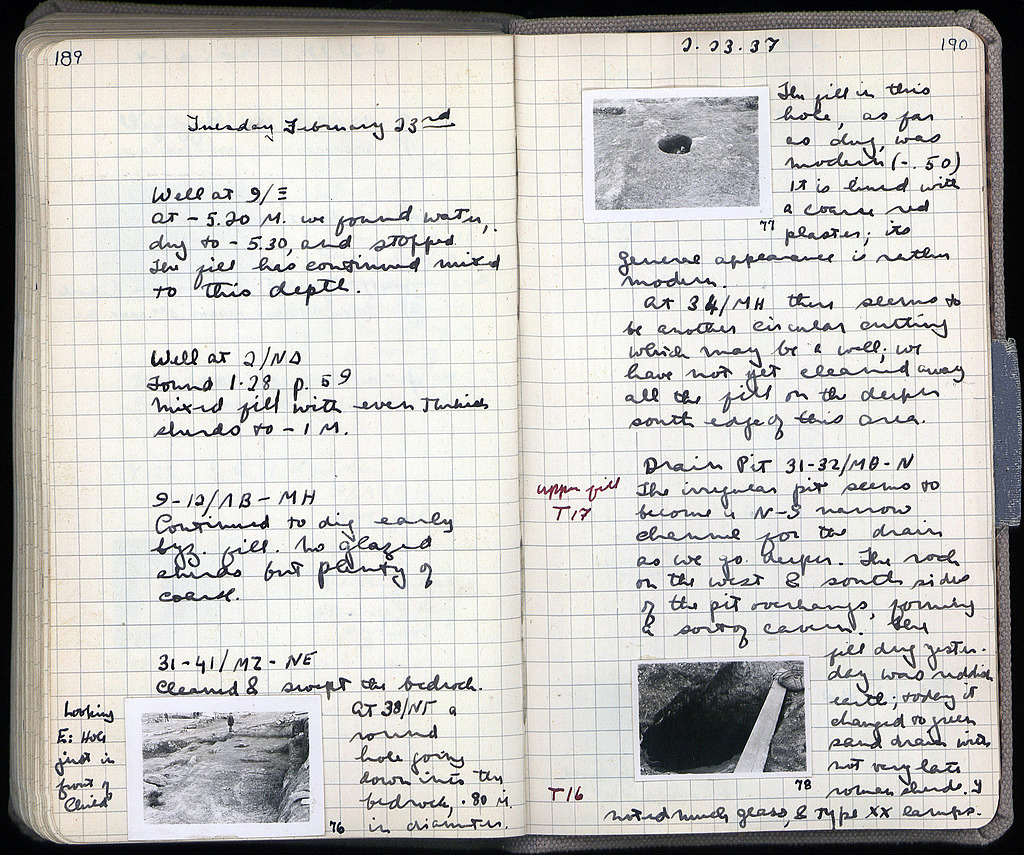 189
Tuesday February 23rd
Well at 9/Ξ
At - 5.20 M. we found water,
dug to - 5.30, and stopped.
The fill has continued mixed
to this depth.
Well at 2/ΝΔ
Found 1.28 p. 59
Mixed fill with even Turkish
sherds to - 1 M.
9-12/ΛΒ-ΜΗ
Continued to dig early
byz. fill. No glazed
sherds but plenty of
coarse.
31-41/ΜΖ-ΝΕ
Cleaned & swept the bedrock.
At 38/ΝΓ a
round
hole going
down into the
bedrock, .80 M.
in diameter.
Looking
E: Hole
just in
front of
child
76
2.23.37
190
The fill in this
hole, as far
as dug, was
modern (-.50)
It is lined with
a coarse red
plaster; its
77
general appearance is rather
modern.
At 34/ΜΗ there seems to
be another circular cutting
which may be a well; we
have not yet cleaned away
all the fill on the deeper
south edge of this area.
Drain Pit 31-32/ΜΘ-Ν
upper fill
T17
The irregular pit seems to
become a N-S narrow
channel for the drain
as we go deeper. The rock
on the west & south sides
of the pit overhangs, forming
a sort of cavern. The
fill dug yester-
day was reddish
earth; today it
changed to green
sand drain with
not very late
roman sherds. I
78
T16
noted much glass, & Type XX lamps.